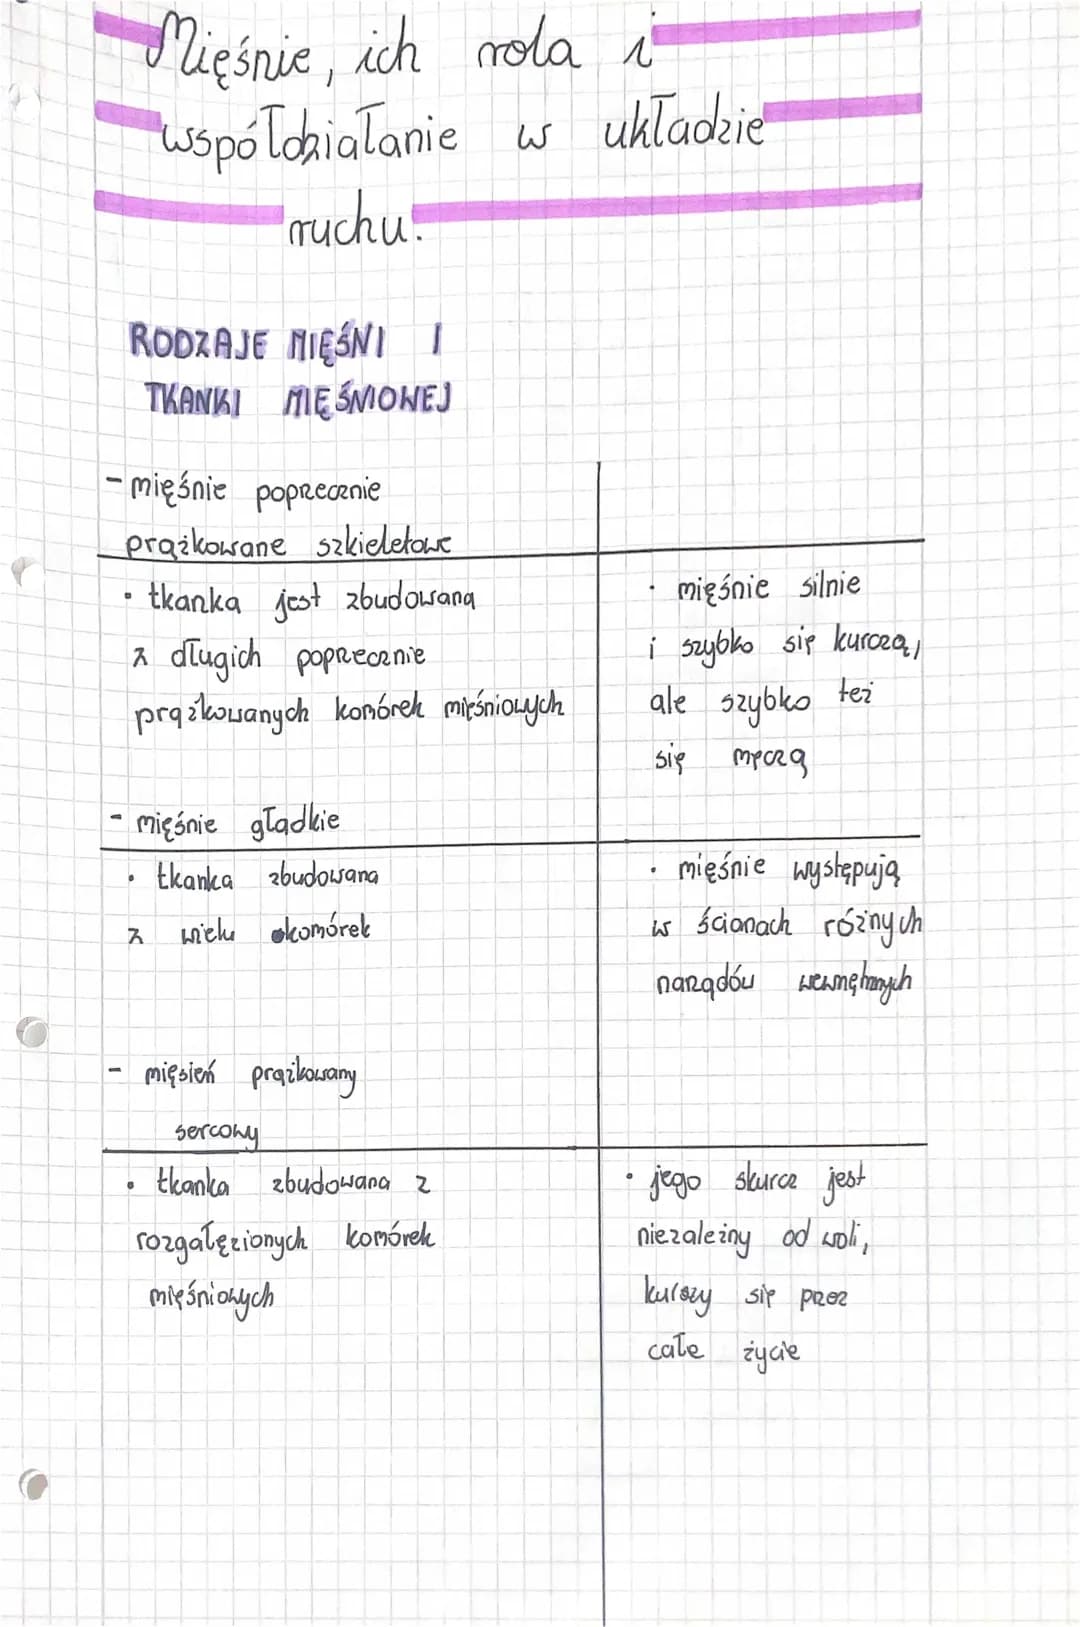 Mięśnie, ich rola i
współdziałanie w układzie
ruchu.
RODZAJE MIĘŚNI I
TKANKI MIĘŚNIOWEJ
- mięśnie poprzecznie
prążkowane szkieletowe
• tkanka jest zbudowana
z długich poprzecznie
prążkowanych komórek mięśniowych
• mięśnie silnie
i szybko się kurczą,
ale szybko też
się męczą
- mięśnie gładkie
• tkanka zbudowana
z wielu komórek
• mięśnie występują
w ścianach różnych
narządów wewnętrznych
- mięsień prążkowany
sercowy
• tkanka zbudowana z
rozgałęzionych komórek
mięśniowych
• jego skurcz jest
niezależny od woli,
kurczy się przez
całe życie